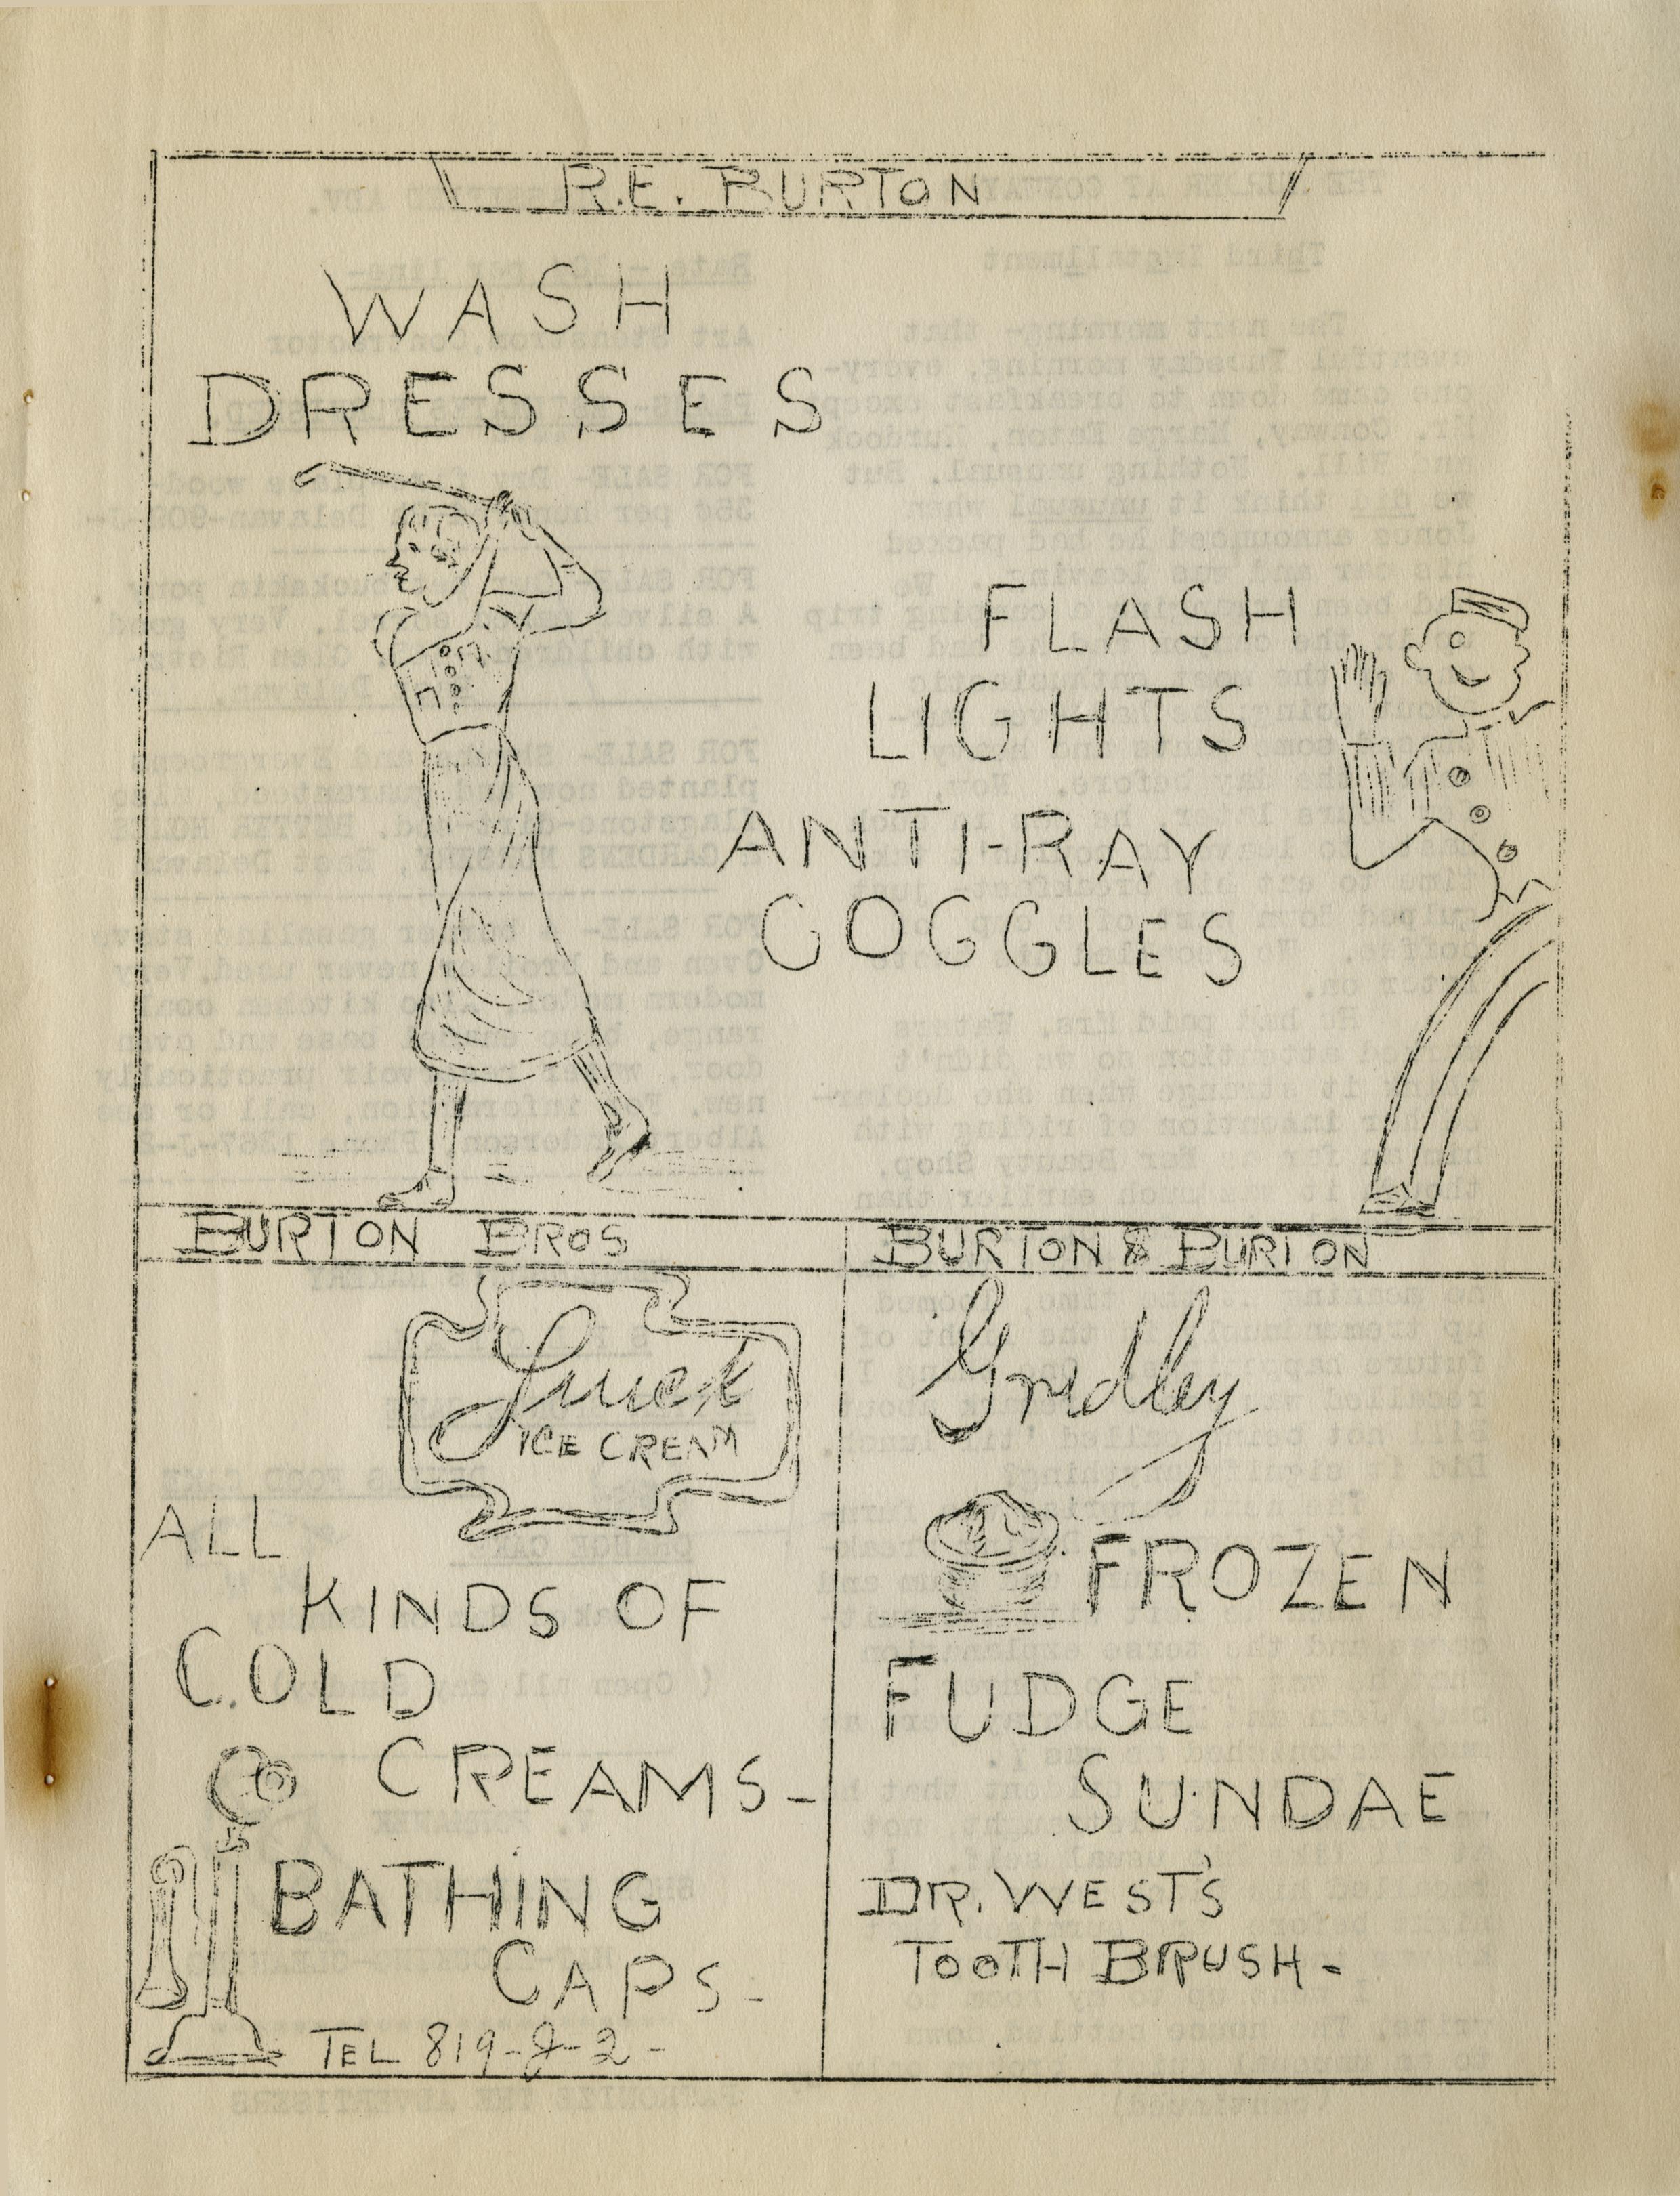 R.E. BURTON
WASH
DRESSES
FLASH
LIGHTS
ANTI-RAY
GOGGLES
BURTON BROS
Luick
ICE CREAM
ALL
KINDS OF
COLD
CREAMS-
BATHING
CAPS-
TEL 819-J-2-
BURTON & BURTON
Gridley
FROZEN
FUDGE
SUNDAE
DR. WEST'S
TOOTH BRUSH-